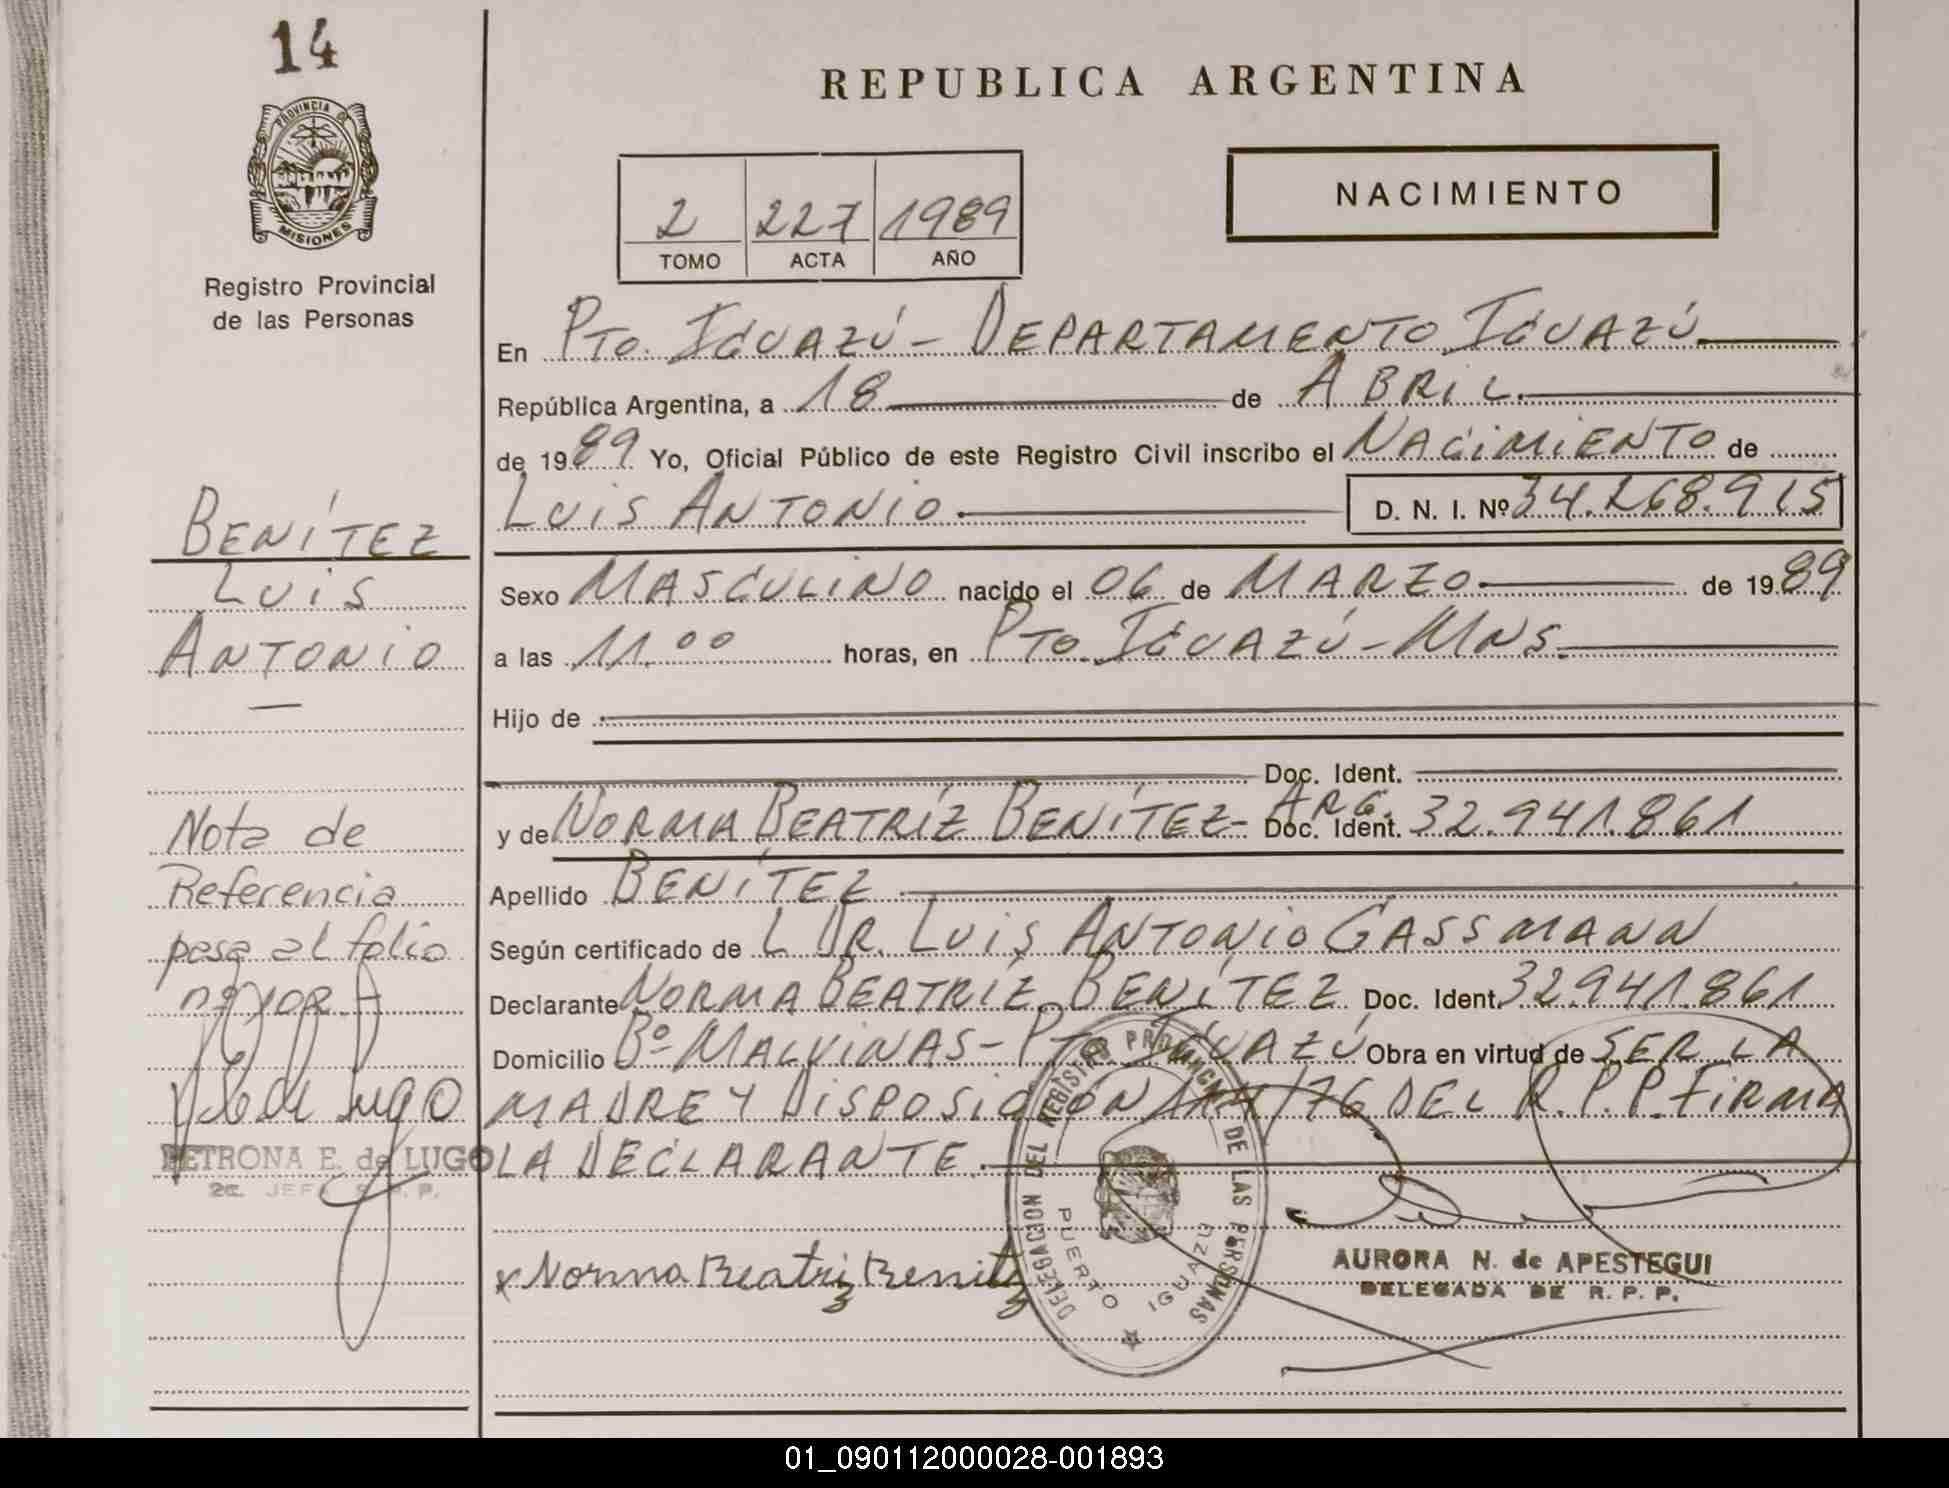 14
PROVINCIA DE
MISIONES
Registro Provincial
de las Personas
REPUBLICA ARGENTINA
NACIMIENTO
2 227 1989
TOMO ACTA AÑO
En Pto. Iguazú - Departamento Iguazú
República Argentina, a 18 de Abril
de 1989 Yo, Oficial Público de este Registro Civil inscribo el Nacimiento de
Luis Antonio D. N. I. Nº 34.268.915
Sexo Masculino nacido el 06 de Marzo de 1989
a las 11.00 horas, en Pto. Iguazú - Mns.
Hijo de
Doc. Ident.
y de Norma Beatríz Benítez - Arg. Doc. Ident. 32.941.861
Apellido Benítez
Según certificado de L Dr. Luis Antonio Gassmann
Declarante Norma Beatríz Benítez Doc. Ident. 32.941.861
Domicilio Bº Malvinas - Pto Iguazú Obra en virtud de ser la
madre y Disposición /76 del R.P.P. Firma
la declarante.
x Norma Beatriz Benitez
AURORA N. de APESTEGUI
DELEGADA DE R. P. P.
DELEGACION DEL REGISTRO PROVINCIAL DE LAS PERSONAS
PUERTO IGUAZU
Benítez
Luis
Antonio
Nota de
Referencia
pasa al folio
de Lugo
PETRONA E. de LUGO
2a. JEFA R. P. P.
01_090112000028-001893